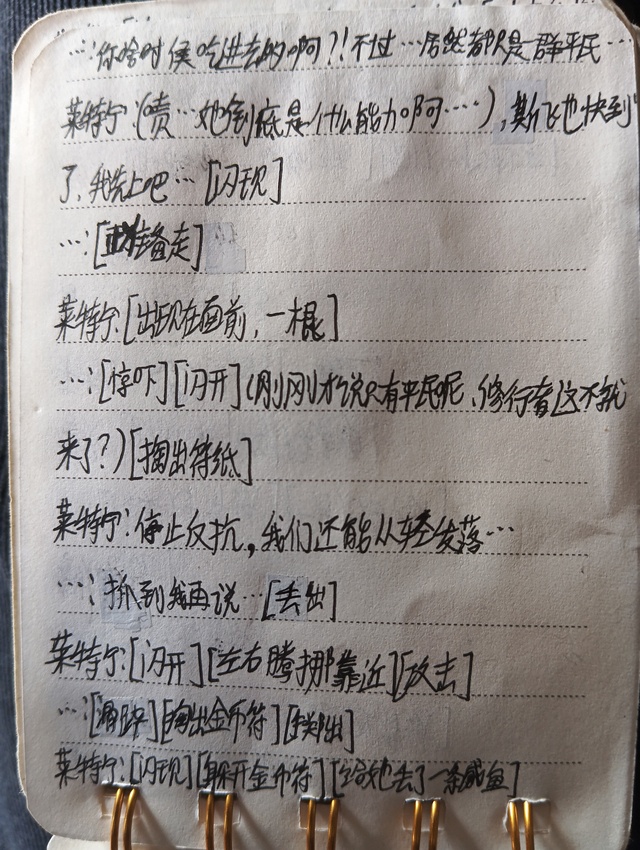 …:你啥时候吃进去的啊?!不过…居然都只是群平民…
莱特宁:(啧…她到底是什么能力啊……),莫飞也快到
了,我先上吧…[闪现]
…:[准备走]
莱特宁:[出现在面前,一棍]
…:[惊吓][闪开](刚刚才说只有平民呢,修行者这不就
来了?)[掏出符纸]
莱特宁:停止反抗,我们还能从轻发落…
…:抓到我再说…[丢出]
莱特宁:[闪开][左右腾挪靠近][攻击]
…:[滑步][掏出金币符][掷出]
莱特宁:[闪现][躲开金币符][给她丢了一条咸鱼]